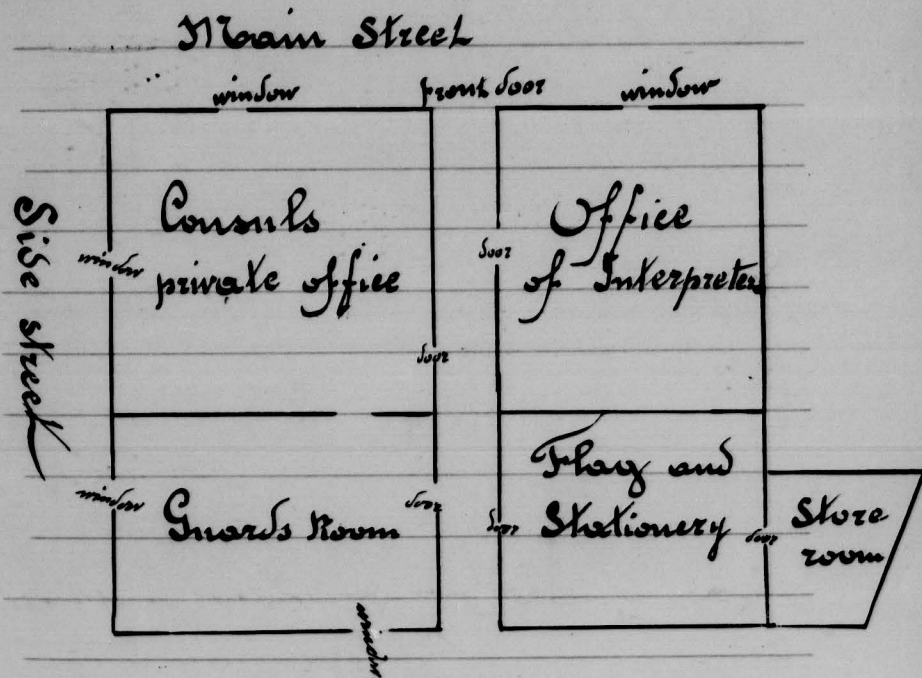 Main Street
window
front door
window
Side street
Consuls
private office
window
door
Office
of Interpreter
door
window
Guards Room
door
window
Flag and
Stationery
door
door
Store
room